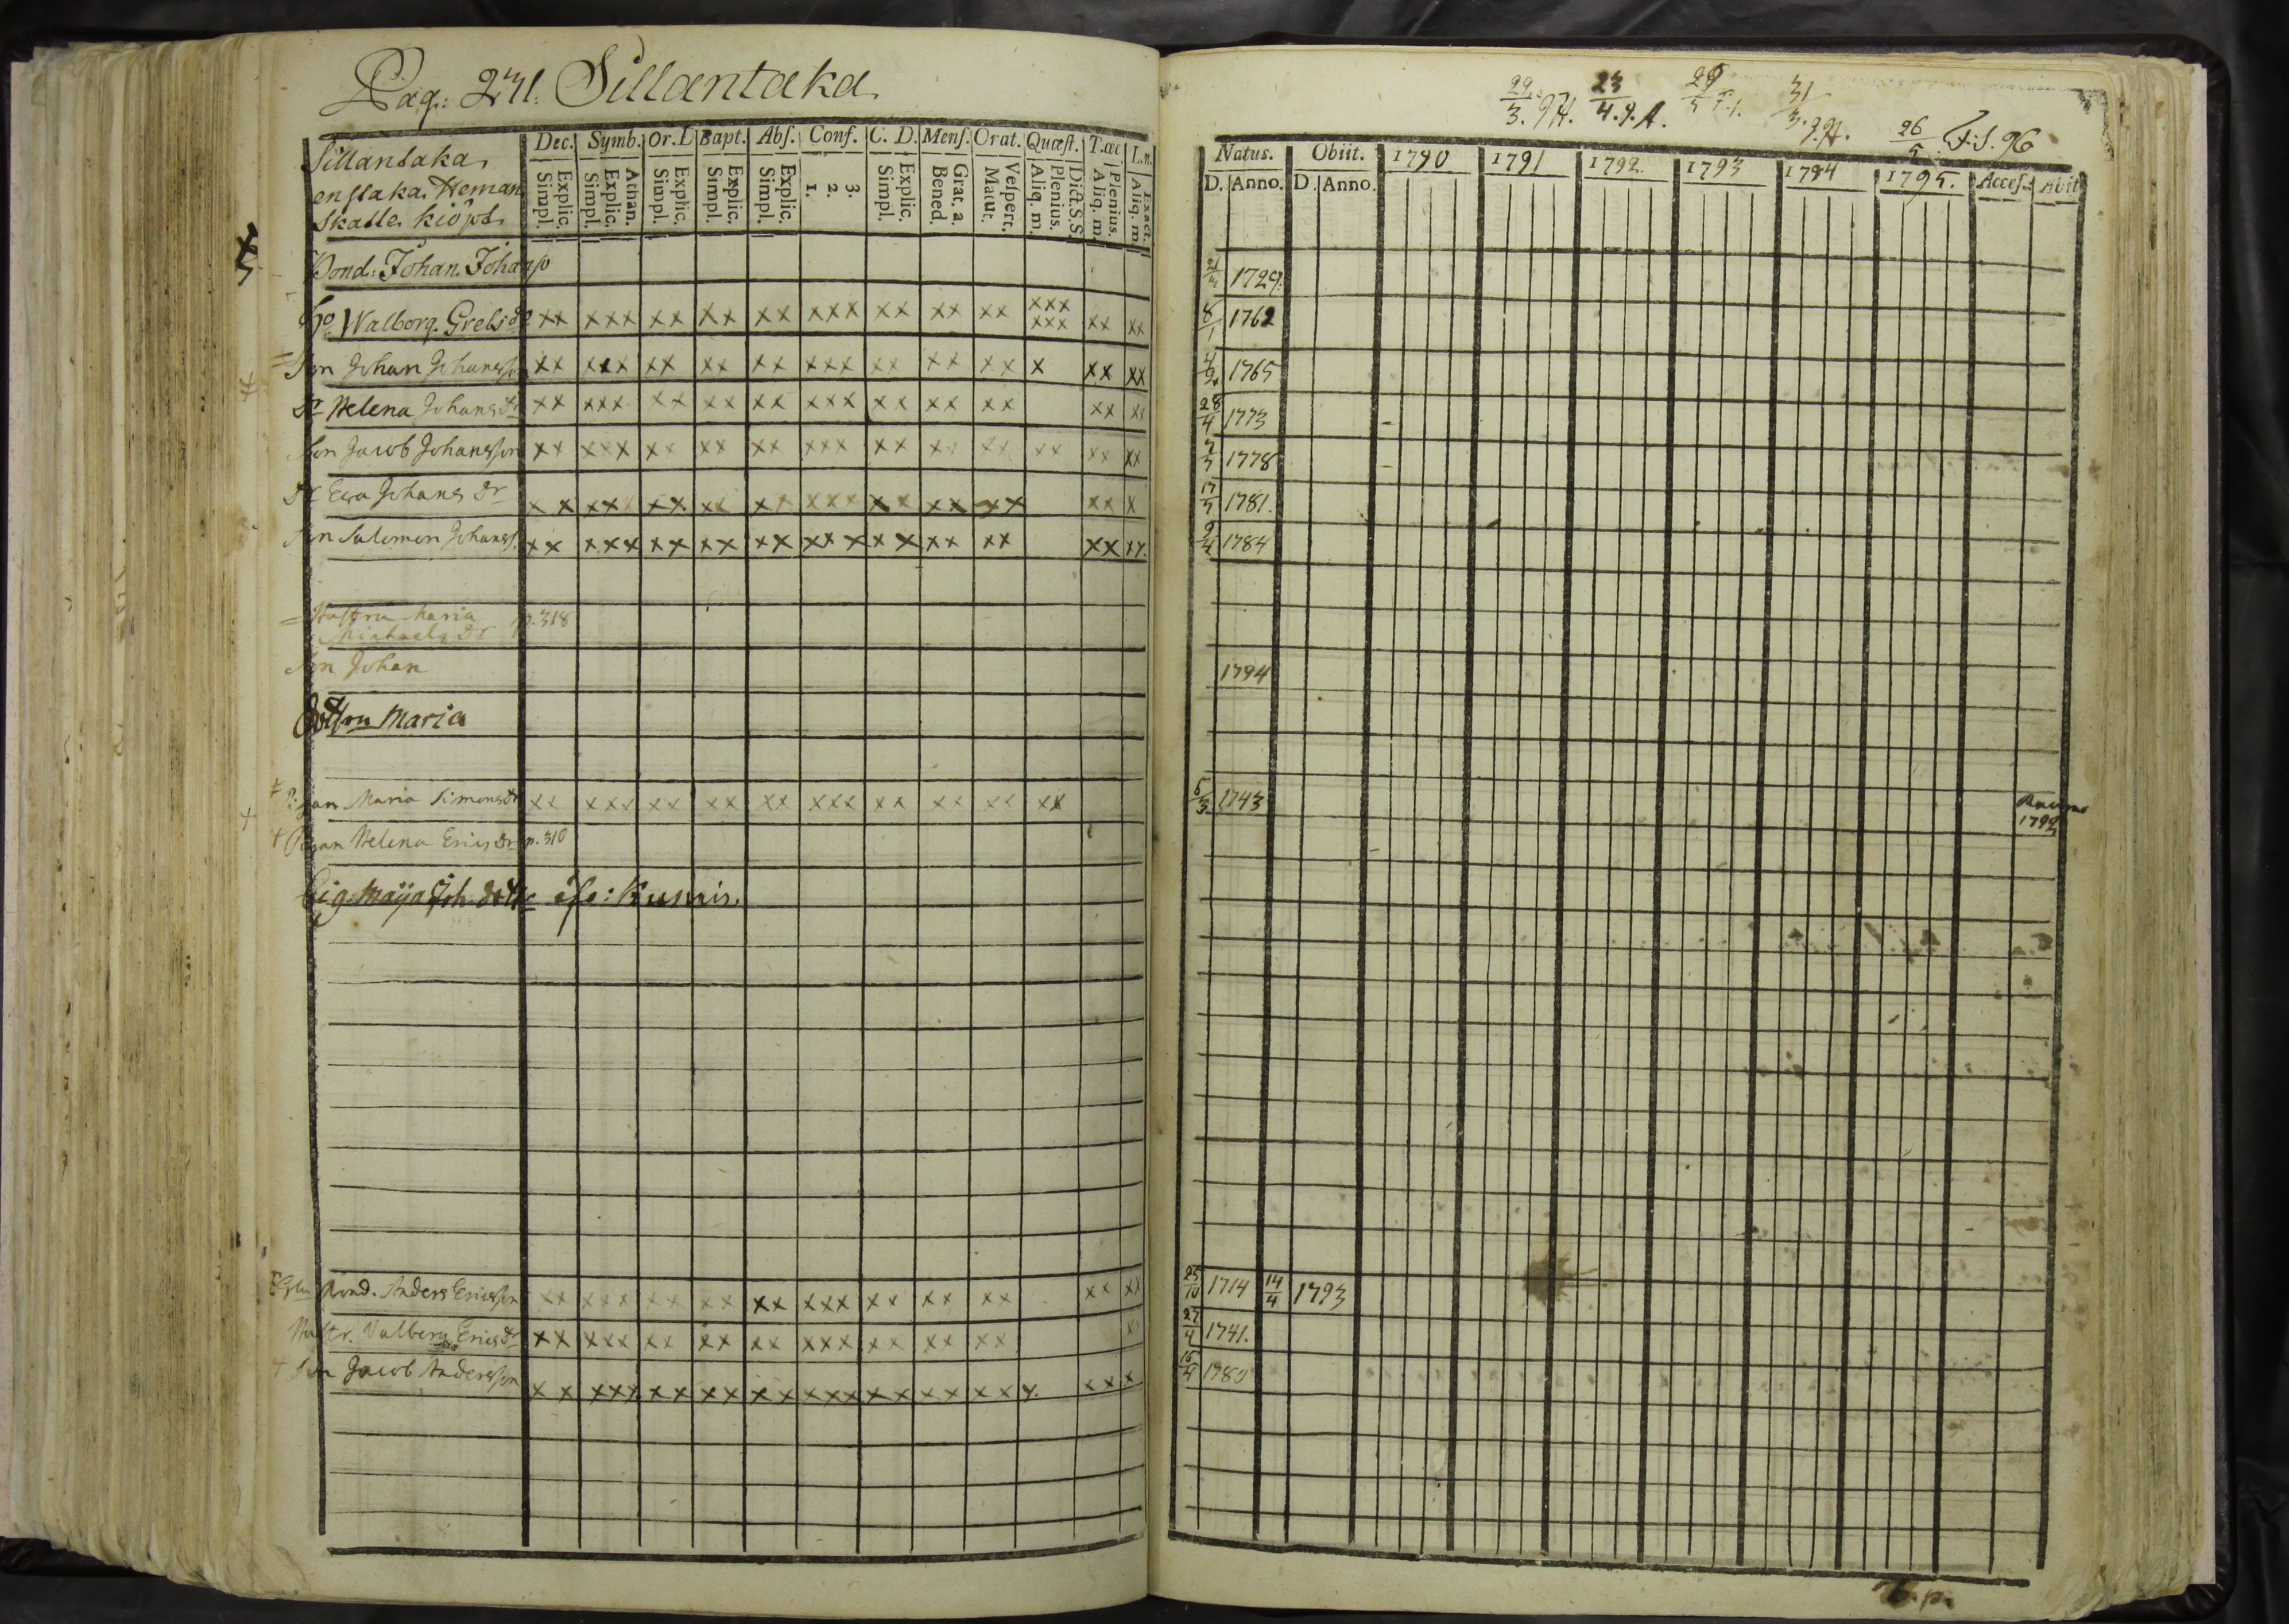 Pag: 241. Sillantaka
Sillantaka
enstaka Heman
Skatte kiöpt
Dec. Symb. Or. D Bapt. Abs. Conf. C. D. Mens. Orat. Quæst. T. œc L. n.
Explic. Simpl. Athan. Explic. Simpl. Explic. Simpl. Explic. Simpl. Explic. Simpl. 3. 2. 1. Explic. Simpl. Grat. a. Bened. Vespert. Matut. Dict. S.S. Plenius. Aliq. m. Plenius. Aliq. m. Exact. Aliq. m
Bond: Johan Johanso
ho Walborg Grelsdr xx xxx xx xx xx xxx xx xx xx xxx xxx xx xx
Son Johan Johansson xx xxx xx xx xx xxx xx xx xx x xx xx
Dr Helena Johansdr xx xxx xx xx xx xxx xx xx xx xx xx
Son Jacob Johansson xx xxx xx xx xx xxx xx xx xx xx xx xx
Dr Eva Johans dr xx xxx xx xx xx xxx xx xx xx xx x
Son Salomon Johanss. xx xxx xx xx xx xxx xx xx xx xx xx
Hustru Maria p. 318
Michaels dr
Son Johan
Maria
Pigan Maria Simonsdr xx xxx xx xx xx xxx xx xx xx xx
Pigan Helena Erics dr p. 310
Pig. Maija Joh. dottr
Bond. Anders Ericsson xx xxx xx xx xx xxx xx xx xx xx xx
Hustr. Valborg Ericsdr xx xxx xx xx xx xxx xx xx xx x
Son Jacob Andersson xx xxx xx xx xx xxx xx xx xx x. xx x
29/3. 23/4. 31/3. 26/5 96
Natus. Obiit. 1790 1791 1792. 1793 1794 1795. Acces. Abit
D. Anno. D. Anno.
1729.
8/1 1762
4/9. 1765
28/4 1773
1778
17/5 1781.
9/4 1784
1794
6/3 1743 1792
25/10 1714 14/4 1793
27/4 1741.
1780